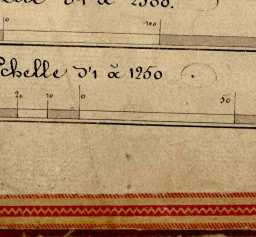 0 100
Echelle d'1 à 1250
20 10 0 50